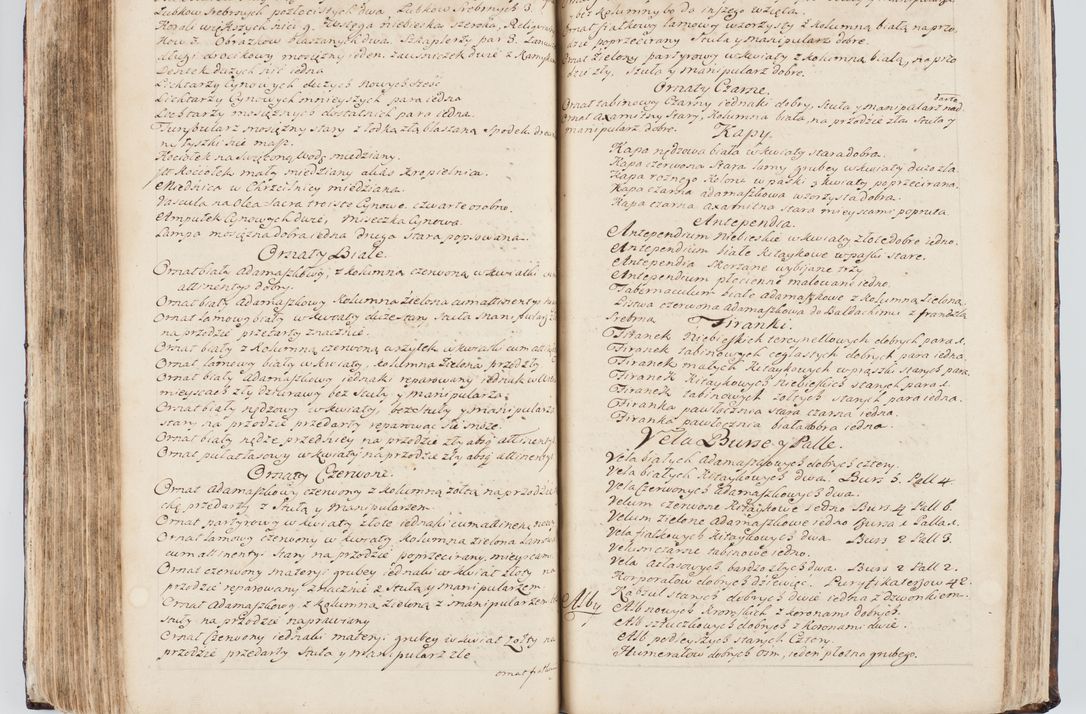 Ząbków Srebrnych pozłocistych dwa Ząbków Srebrnych 3.
Korali większych nici 9.
Lichtarzy Cynowych dużych nowych sześć
Lichtarzy Cynowych mnieyszych para iedna
Lichtarzy mosiężnych dostatnich para iedna.
Turybularz mosiężny stary z łodką blaszaną Spodek
na łyszki nie masz.
Kociołek na święconą wodę miedziany.
Kociołek mały miedziany alias Kropielnica.
Miednica w Chrzcilnicy miedziana.
Vascula na Olea Sacra troiste Cynowe. czwarte osobno.
Ampułek Cynowych dwie, Miseczka Cynowa
Lampa mosiężna dobra iedna druga stara popsowana.
Ornaty Białe.
Ornat biały adamaszkowy, z kolumną czerwoną w kwiatki
attinentys dobry.
Ornat biały adamaszkowy kolumna zielona cum attinentys
Ornat lamowy biały w kwiaty duże stary Stuła manipularz
na przodzie przetarty znacznie.
Ornat biały z kolumną czerwoną wszytek w kwiatki cum
Ornat lamowy biały w kwiaty, kolumna zielona, przedzły
Ornat biały adamaszkowy iednaki reparowany iednak w
mieyscach zły dziurawy bez Stuły y manipularza
Ornat biały nędzowy w kwiaty, bez Stuły y manipularza
stary na przodzie przedarty reparować się może.
Ornat biały
Ornat w kwiaty na przodzie zły absq attinentys
Ornaty Czerwone.
Ornat adamaszkowy czerwony z kolumną żółtą na przodzie
przedarty z Stułą y Manipularzem.
Ornat w kwiaty złote iednaki cum attinen:
Ornat lamowy czerwony w kwiaty kolumna zielona
cum attinenty: stary na przodzie poprzecirany mieyscami
Ornat czerwony materyi grubey iednaki w kwiat złoty na
przodzie reparowany znacznie z Stułą y manipularzem
Ornat adamaszkowy z kolumną zieloną z manipularzem
stuły na przodzie naprawiany
Ornat Czerwony iednaki materyi grubey w kwiat żołty na
przodzie przedarty Stuła y manipularz złe
kolumny bo do inszego wzięta.
Ornat fiałkowy lamowy wzorzysty z kolumną białą na przo
dzie poprzecirany Stuła y manipularz dobre.
Ornat zielony w kwiaty z kolumną białą, na przo
dzie zły. Stuła y manipularz dobre.
Ornaty Czarne.
Ornat tabinowy Czarny iednaki dobry, Stuła y manipularz
Ornat axamitny Stary, kolumna biała, na przodzie zła Stuła y
manipularz dobre.
Kapy.
Kapa nędzowa biała w kwiaty stara dobra.
Kapa czerwona stara lamy grubey w kwiaty dużo zła.
Kapa rożnego koloru w paski y kwiaty poprzecirana.
Kapa czarna adamaszkowa wzorzysta dobra.
Kapa czarna axamitna stara mieyscami popruta.
Antependia.
Antependium Niebieskie w kwiaty złote dobre iedno.
Antependium białe kitaykowe w paski stare.
Antependia skorzane wybijane trzy
Antependium płocienne malowane iedno.
Tabernaculum białe adamaszkowe z kolumną zieloną.
czerwona adamaszkowa do Baldachimu z frandzlą
Srebrną
Firanki.
Firanek Niebieskich tercynellowych dobrych para 1.
Firanek tabinowych ceglastych dobrych para iedna.
Firanek małych kitaykowych w prążki starych para.
Firanek kitaykowych niebieskich starych para 1.
Firanek tabinowych żółtych starych para iedna.
Firanka pawłocznia stara czarna iedna.
Firanka pawłocznia biała dobra iedna.
Vela Bursae y Palle.
Vela białych adamaszkowych dobrych cztery.
Vela białych kitaykowych dwa. Burs 5. Pall 4.
Vela Czerwonych adamaszkowych dwa.
Velum czerwone kitaykowe iedno Burs 4 Pall 6.
Velum zielone adamaszkowe iedno Bursa 1 Palla 1.
Vela fiałkowych kitaykowych dwa. Burs 2 Pall 3.
Velum czarne tabinowe iedno.
Vela atłasowych bardzo złych dwa. Burs 2 Pall 2.
Korporałow dobrych dziewięć. Puryfikaterzow 42.
Kabzul starych dobrych dwie iedna z dzwonkiem.
Alby
Alb nowych kromskich z koronami dobrych
Alb sztuczkowych dobrych z koronami dwie.
Alb podleyszych starych Cztery.
Humerałow dobrych osm, ieden płotna grubego.